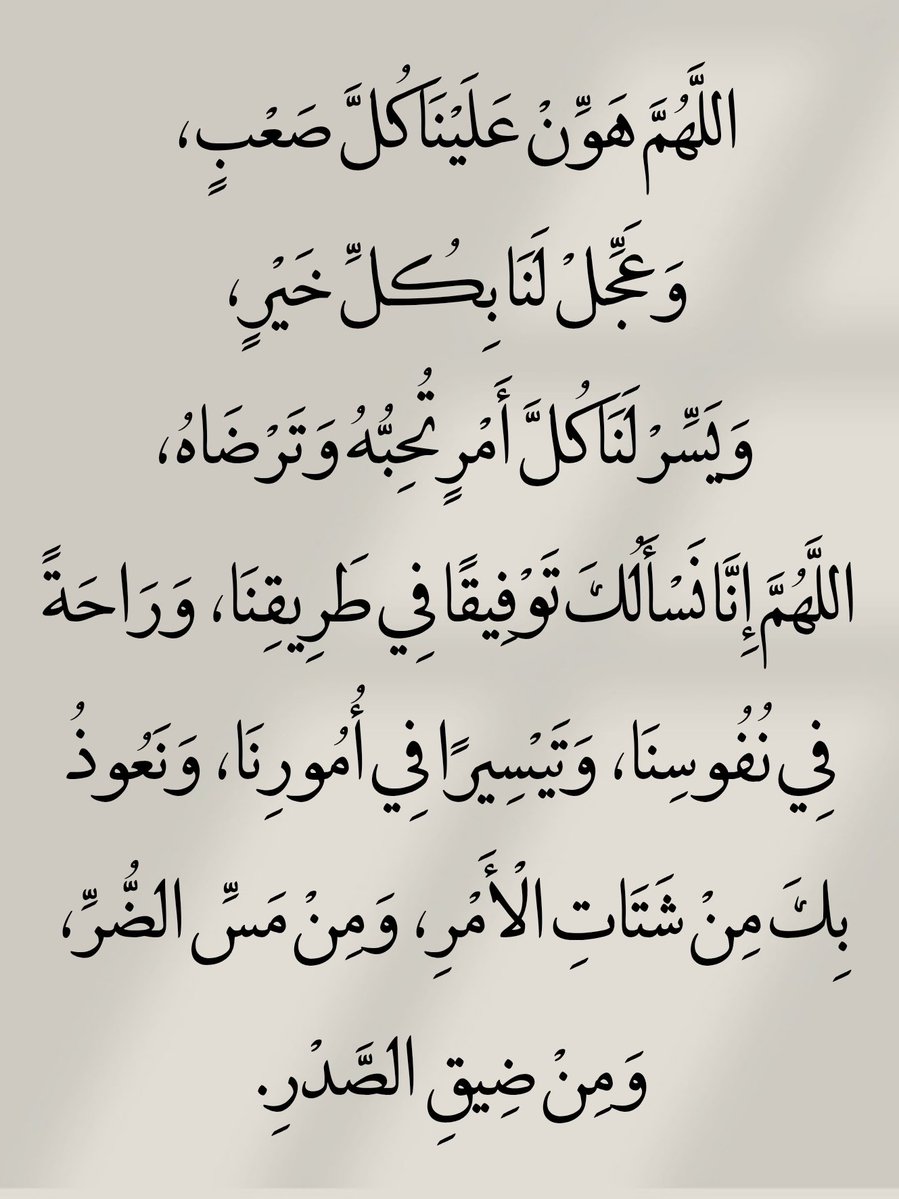 اللَّهُمَّ هَوِّنْ عَلَيْنَا كُلَّ صَعْبٍ،
وَعَجِّلْ لَنَا بِكُلِّ خَيْرٍ،
وَيَسِّرْ لَنَا كُلَّ أَمْرٍ تُحِبُّهُ وَتَرْضَاهُ،
اللَّهُمَّ إِنَّا نَسْأَلُكَ تَوْفِيقًا فِي طَرِيقِنَا، وَرَاحَةً
فِي نُفُوسِنَا، وَتَيْسِيرًا فِي أُمُورِنَا، وَنَعُوذُ
بِكَ مِنْ شَتَاتِ الْأَمْرِ، وَمِنْ مَسِّ الضُّرِّ،
وَمِنْ ضِيقِ الصَّدْرِ.